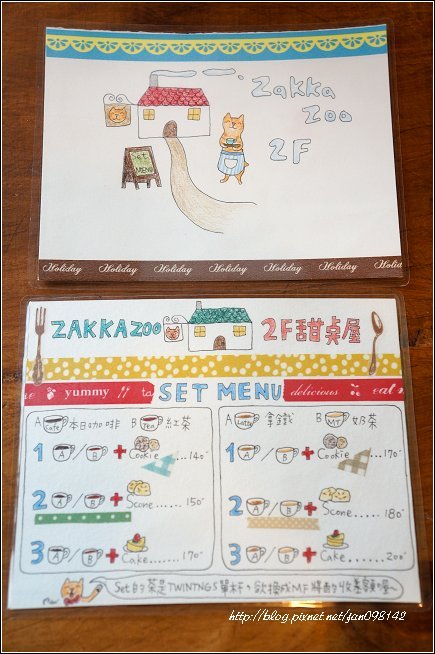 Zakka
Zoo
2F
Set
MENU
Holiday Holiday Holiday Holiday Holiday Holiday
ZAKKA ZOO 2F甜桌屋
yummy SET MENU delicious eat
A Cafe 本日咖啡 B Tea 紅茶
1 A / B + Cookie ...140
2 A / B + Scone ...... 150
3 A / B + Cake ...... 170
A Latte 拿鐵 B MT 奶茶
1 A / B + Cookie ...170
2 A / B + Scone ...... 180
3 A / B + Cake ...... 200
Set的茶是TWININGS單杯，欲換成MF將酌收差額喔~
http://blog.pixnet.net/jan098142